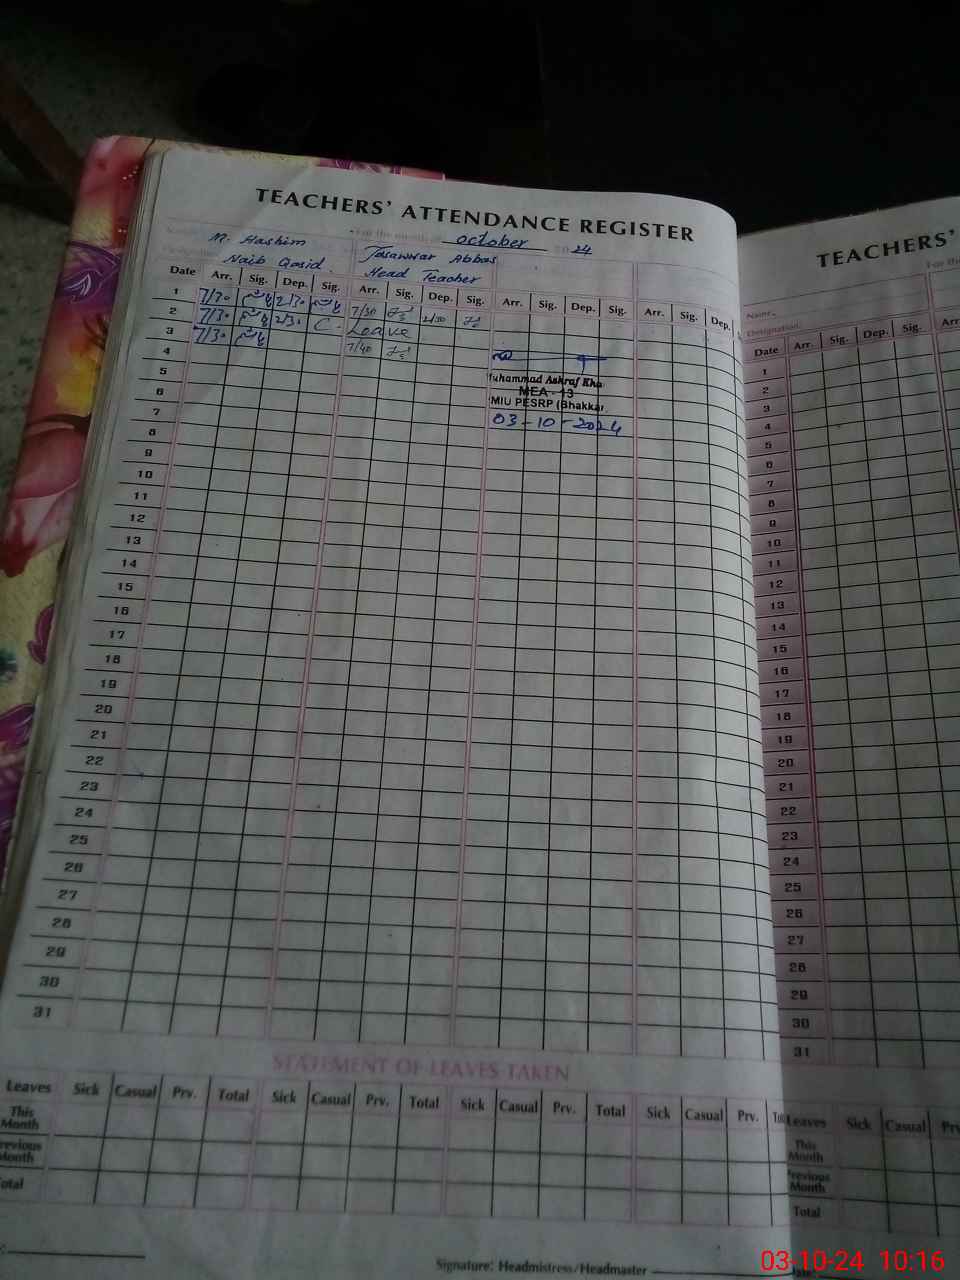 TEACHERS' ATTENDANCE REGISTER
For the month of October 2024
M. Hashim
Naib Qasid.
Tasawwar Abbas
Head Teacher
Date Arr. Sig. Dep. Sig. Arr. Sig. Dep. Sig. Arr. Sig. Dep. Sig. Arr. Sig. Dep.
1 7/30 2/30 7/30 2/30
2 7/30 2/30 C- Leave
3 7/30 7/40
4
5
6
7
8
9
10
11
12
13
14
15
16
17
18
19
20
21
22
23
24
25
26
27
28
29
30
31
Muhammad Ashraf Kha
MEA - 13
MIU PESRP (Bhakkar
03-10-2024
STATEMENT OF LEAVES TAKEN
Leaves Sick Casual Prv. Total Sick Casual Prv. Total Sick Casual Prv. Total Sick Casual Prv.
This Month
revious Month
otal
Signature: Headmistress/Headmaster
TEACHERS'
For the
Name
Designation
Date Arr. Sig. Dep. Sig. Arr
1
2
3
4
5
6
7
8
9
10
11
12
13
14
15
16
17
18
19
20
21
22
23
24
25
26
27
28
29
30
31
Leaves Sick Casual Prv
This Month
Previous Month
Total
03-10-24 10:16